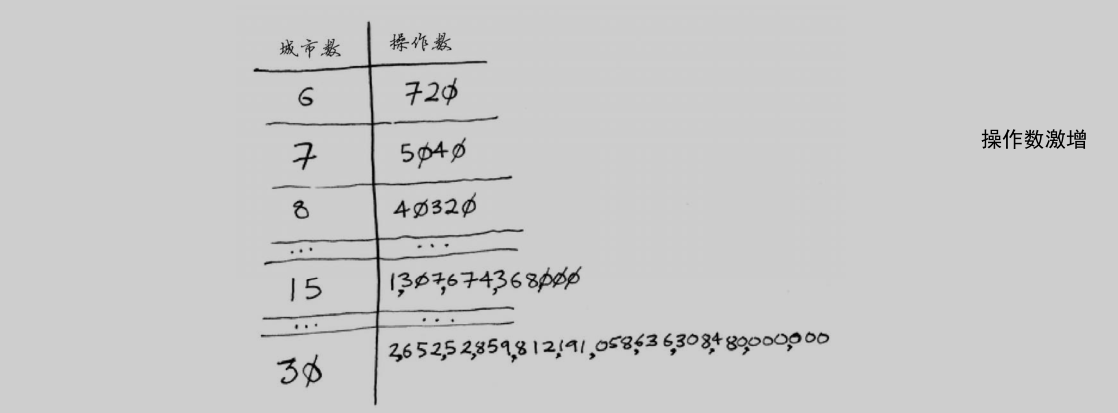 城市数 操作数
6 720
操作数激增
7 5040
8 40320
... ...
15 1,307,674,368000
... ...
30 2,652,52,859,812,191,058,636,308,480,000,000